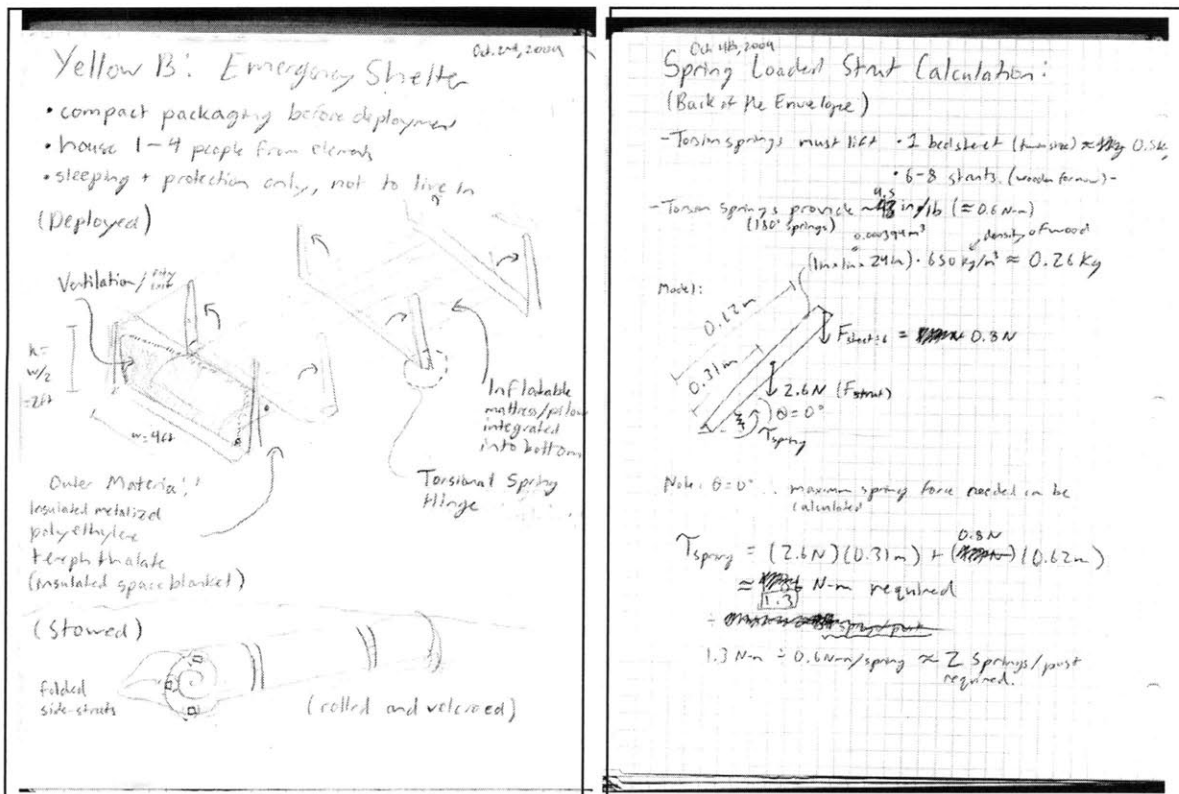 Oct. 2nd, 2009
Yellow B: Emergency Shelter
• compact packaging before deployment
• house 1-4 people from elements
• sleeping + protection only, not to live in
(Deployed)
Ventilation/
h=
w/2
=2ft
w=4ft
Inflatable
mattress/pillow
integrated
into bottom
Torsional Spring
Hinge
Outer Material:
Insulated metalized
polyethylene
terephthalate
(insulated space blanket)
(Stowed)
folded
side-struts
(rolled and velcroed)
Oct 4th, 2009
Spring Loaded Strut Calculation:
(Back of the Envelope)
-Torsion springs must lift • 1 bedsheet (twin size) ≈ 0.5kg
• 6-8 struts (wooden for now) -
-Torsion springs provide ~ in/lb (≈ 0.6 N-m)
(180° springs)
0.000394m³
density of wood
(1in x 1in x 24in) • 650 kg/m³ ≈ 0.26 Kg
Model:
0.62m
0.31m
= 0.8N
2.6N (Fstrut)
θ=0°
τspring
Note: θ=0° ∴ maximum spring force needed can be
calculated
0.8N
τspring = (2.6N)(0.31m) + ( )(0.62m)
≈ N-m required
1.3
1.3 N-m ÷ 0.6N-m/spring ≈ 2 springs/post
required.